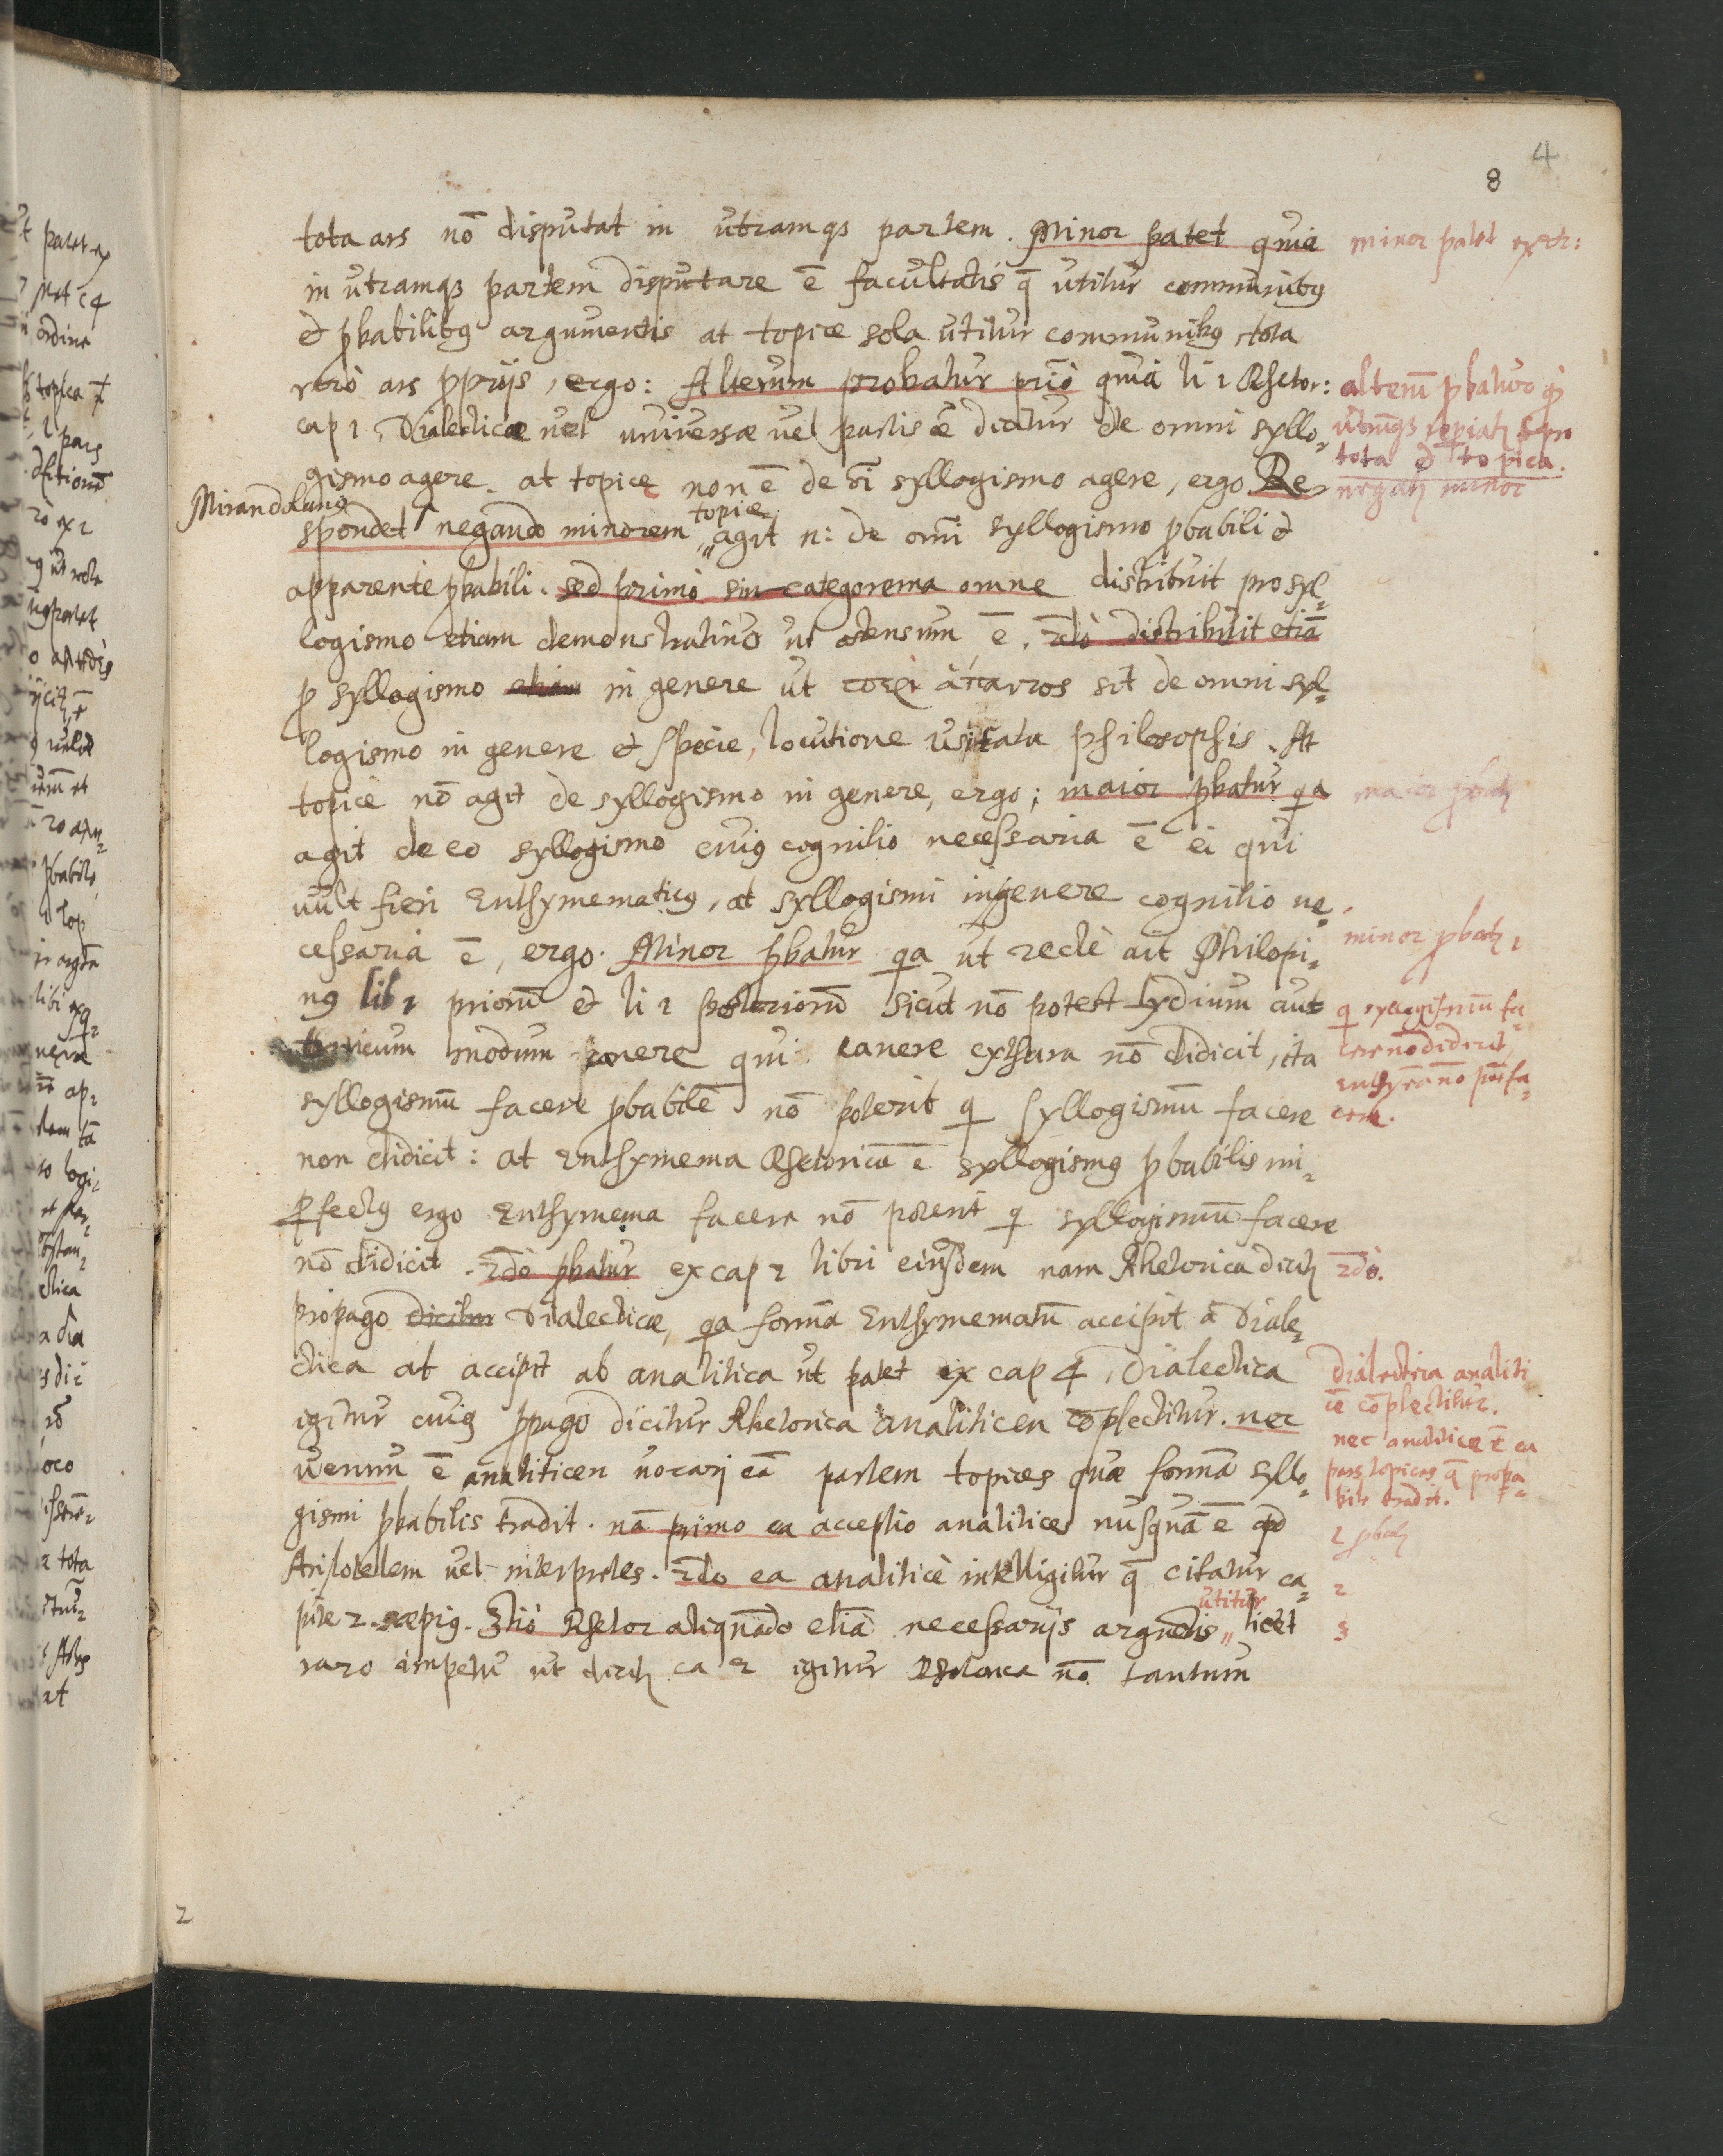 4
8
tota ars nō disputat in utramqꝫ partem. Minor patet quia
in utramqꝫ partem disputare ē facultatis q̄ utitur communibꝰ
& ꝓbabilibꝰ argumentis at topice sola utitur communibꝰ tota
vero ars ꝓprijs, ergo: Alterum probatur prió quia li 1 Rhetor:
cap 1. Dialecticæ vel universæ vel partis ē dicitur de omni syllo-
gismo agere. at topice non ē de oī syllogismo agere, ergo Re-
Mirandulanꝰ
spondet negando minorem topice agit n: de omī syllogismo ꝓbabili &
apparente ꝓbabili. sed primò sincategorema omne distribuit pro syl-
logismo etiam demonstrativo ut ostensum ē. 2dò distribuit etiā
ꝓ syllogismo etiam in genere ut sit de omni syl-
logismo in genere & specie, locutione usitata philosophis. At
topice nō agit de syllogismo in genere, ergo; maior ꝓbatur qa
agit de eo syllogismo cuiꝰ cognitio necessaria ē ei qui
vult fieri Enthymematicꝰ, at syllogismi in genere cognitio ne-
cessaria ē, ergo. Minor ꝓbatur qa ut rectè ait Philopi-
nꝰ lib 1 priorū & li 1 posteriorū sicut nō potest Lydium aut
modum canere qui canere cythara nō didicit, ita
syllogismū facere ꝓbabilē nō poterit q syllogismū facere
non didicit: at Enthymema Rhetoricū ē syllogismꝰ ꝓbabilis im-
ꝑfectꝰ ergo Enthymema facere nō poterit q syllogismū facere
nō didicit. 2dò ꝓbatur ex cap 2 libri eiusdem nam Rhetorica dicitꝫ
propago dicitur Dialecticæ, qa formā Enthymematū accipit à Diale-
ctica at accipit ab analitica ut patet ex cap 4, Dialectica
igitur cuiꝰ ꝓpago dicitur Rhetorica analiticen cōplectitur. nec
verum ē analiticen vocari eā partem topices quæ formā syllo-
gismi ꝓbabilis tradit. nā primo ea acceptio analitices nusquā ē apd
Aristotelem vel interpretes. 2do ea analiticè intelligitur q̄ citatur ca-
pite 2 sæpiꝰ. 3tiò Rhetor aliquādo etiā necessarijs argumētis utitur licet
raro ut dicitꝫ ca 2 igitur Rhetorica nō tantum
minor patet
alterū ꝓbatur
tota & topica.
negatꝫ minor
maior ꝓbatꝫ
minor ꝓbatꝫ 1
q syllogismū fa-
cere nō didicit
Enthyma nō pōt fa-
cere.
2dò.
Dialectica analiti
cē cōplectitur.
nec analitice ē ea
pars topices q̄ proba-
bile tradit.
1 ꝓbatꝫ
2
3
2